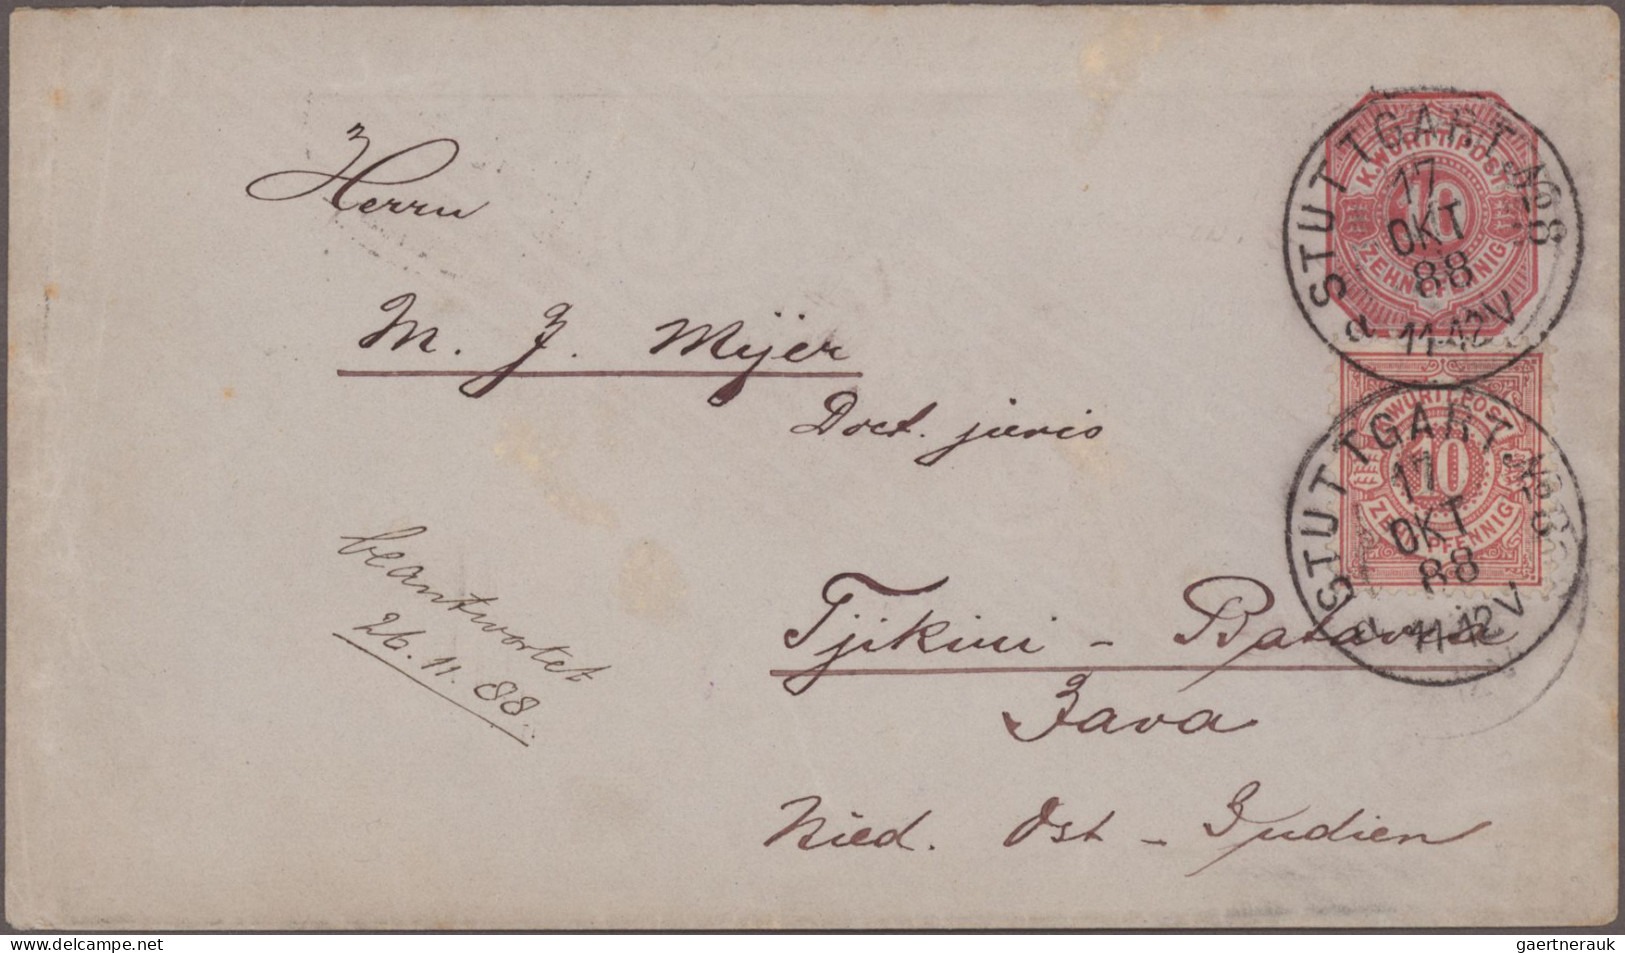 Herrn
M. J. Mijer
Doct. juris
Tjikini - Batavia
Java
Nied. Ost - Indien
beantwortet
26. 11. 88.
K. WÜRTT. POST
10
ZEHN PFENNIG
STUTTGART. №8
17
OKT
88
d 11-12V
K. WÜRTT. POST
10
ZEHN PFENNIG
STUTTGART. №8
17
OKT
88
d 11-12V
www.delcampe.net
gaertnerauk